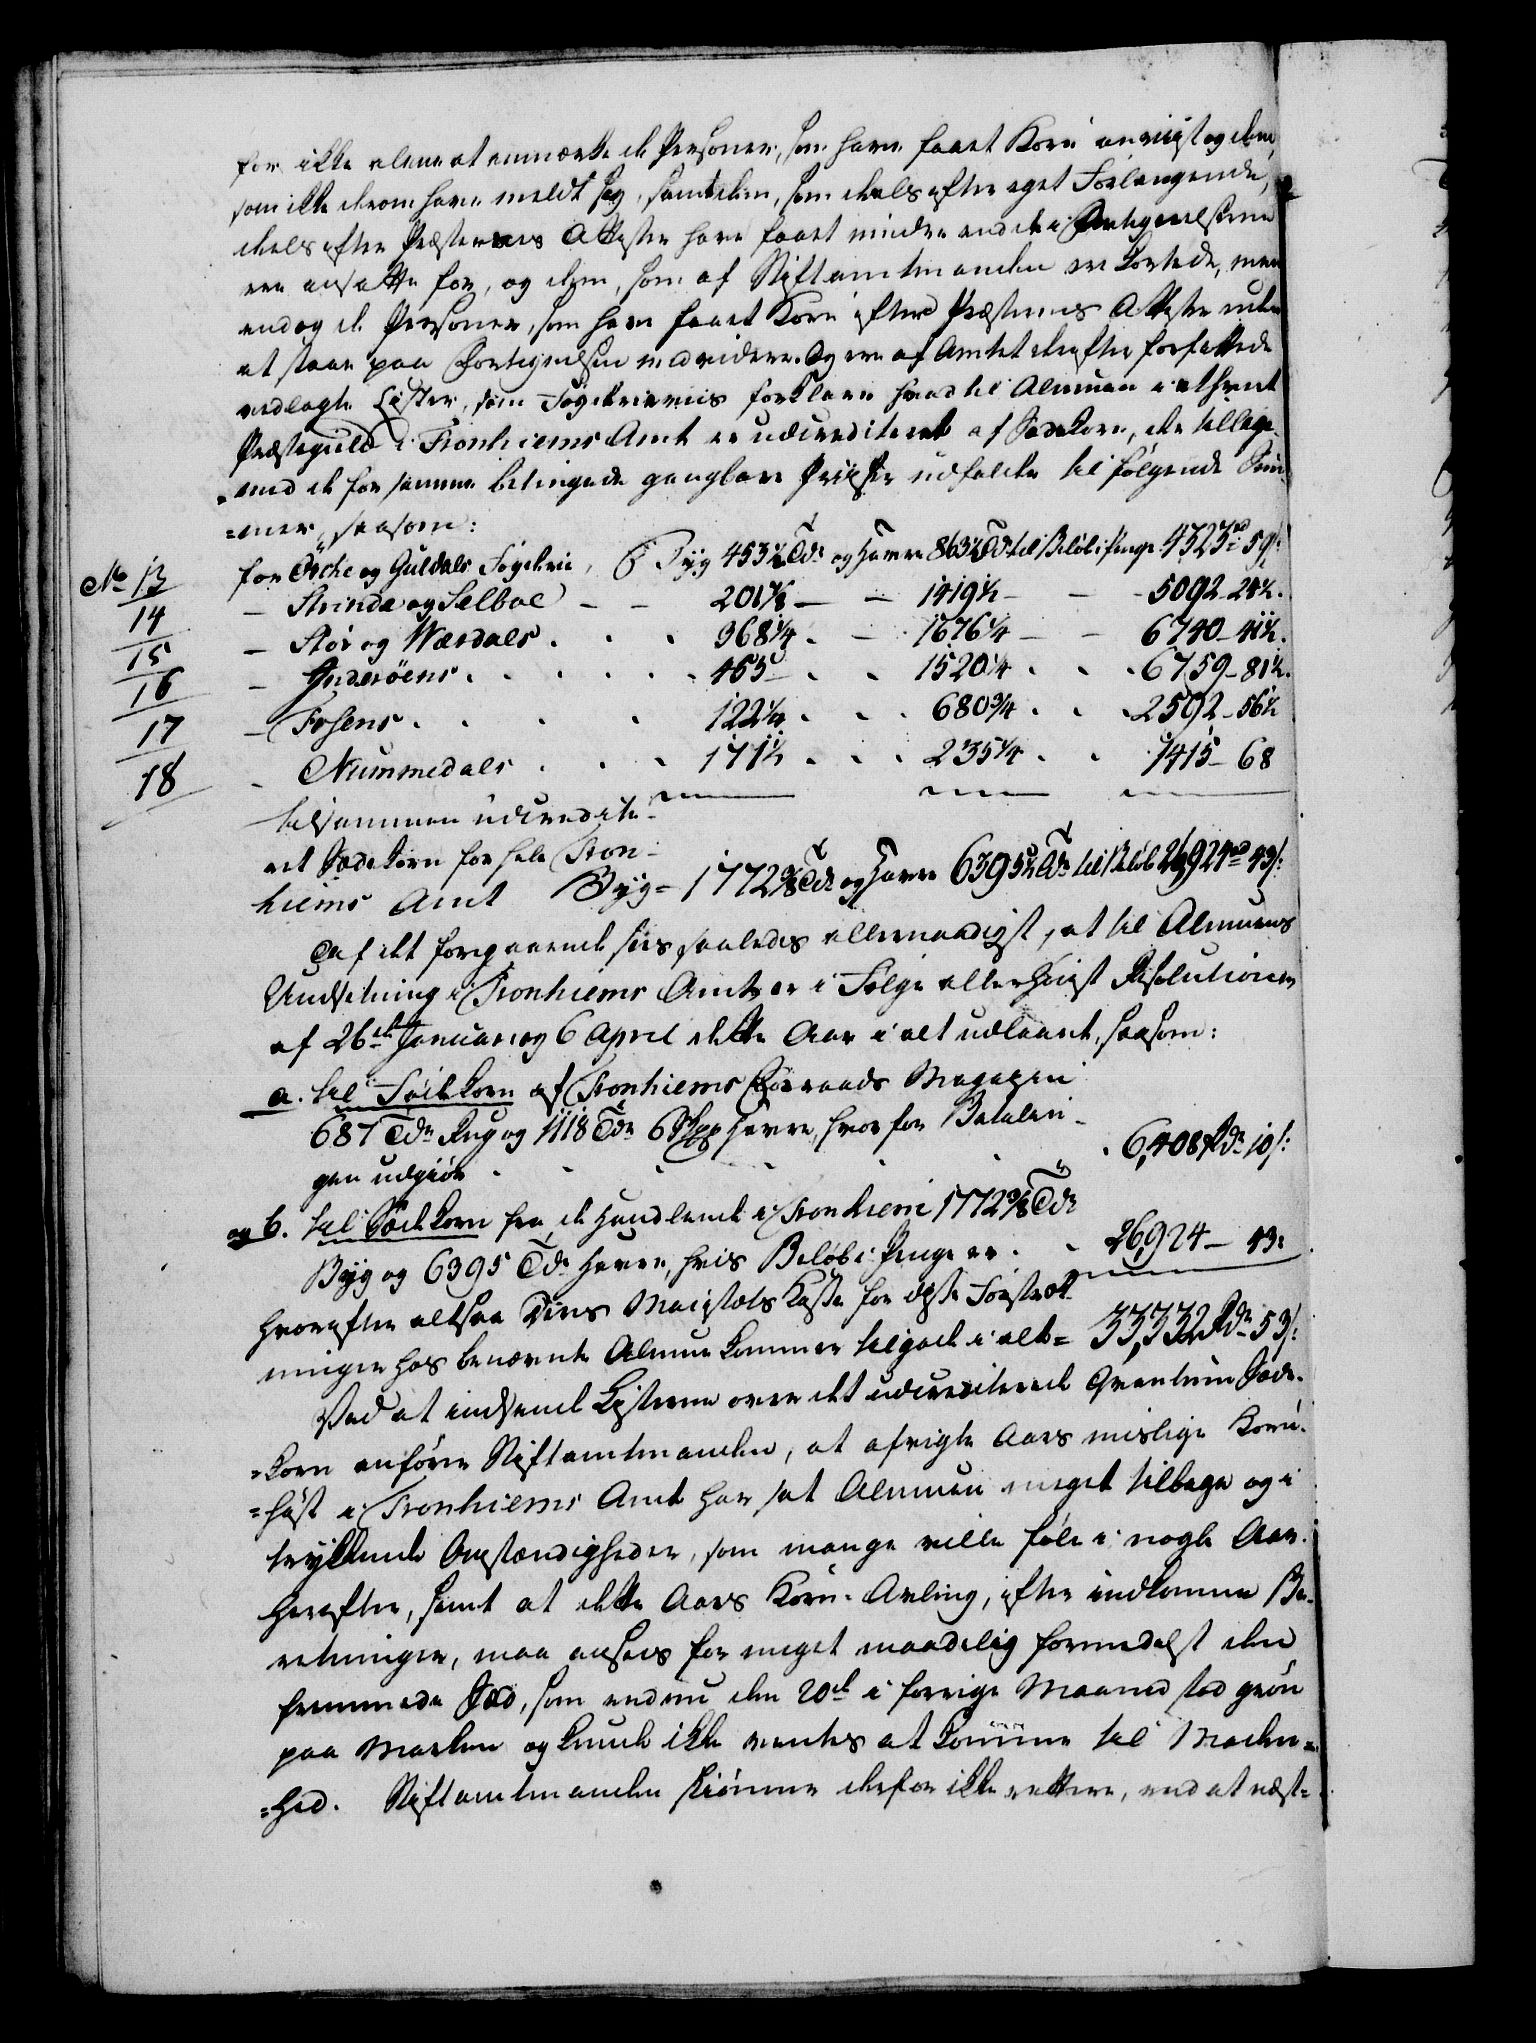 for ikke alene at anmærke de Personer, som have faaet Korn anviist og dem,
som ikke derom have meldt sig, samt dem, som deels efter eget Forlangende,
deels efter Præsternes Attester have faaet mindre end de i Fortegnelserne
ere ansatte for, og dem, som af Stiftamtmanden er kortede, men
endog de Personer, som have faaet Korn efter Præsternes Attester uden
at staae paa Fortegnelsen med videre. Og ere af Amtet derefter forfattede
vedlagte Lister, som Fogderieviis forklare hvad til Almuen i ethvert
Præstegield i Tronhiems Amt er udcrediteret af Sædekorn, der tillige-
med de for samme betingede gangbare Priiser udfalder til følgende Sum-
=mer, saasom:
No 13 for Orche og Guldals Fogderie, Byg 453½ Tdr og Havre 863½ Tdr til Beløb i Penge 4323rd 59s:
14 - Strinde og Selboe - - 201⅞ - - 1419½ - - 5092 - 24½.
15 - Stør og Wærdals . . . 368¼ . - 1676¼ - - 6740 - 41½.
16 - Inderöens . . . . . . 455 . . 1520¼ . . . 6759 - 81½.
17 - Fosens . . . . 122¼ . . . 680¾ . . . 2592 - 56½
18 - Nummedals . . . 171½ . . . 235¼ . . 1415 - 68
tilsammen udcredite-
ret Sædekorn for hele Tron-
hiems Amt Byg = 1772⅜ Tdr og Havre 6395½ Tdr til Beløb 26,924rd 43s:
Af det foregaaende sees saaledes allernaadigst, at til Almuens
Undsetning i Tronhiems Amt er i Følge allerhøiest Resolutioner
af 26de Januar og 6 April dette Aar i alt udlaant, saasom:
a. til Födekorn af Tronhiems Forraads Magazin
687 Tdr Rug og 1118 Tdr 6 Skpr Havre, hvorfor Betalin-
gen udgiør . . . . . . 6,408 Rdr 10s:
og b. til Sædekorn fra de Handlende i Tronhiem 1772⅜ Tdr
Byg og 6395 Tdr Havre, hvis Beløb i Penge er . . 26,924 - 43s
hvorefter altsaa Deres Majestæts Kasse for disse Forstræk-
ninger hos benævnte Almue kommer tilgode i alt = 33,332 Rdr 53s:
Ved at indsende Listerne over det udcrediterede Qvantum Sæde-
=korn anfører Stiftamtmanden, at afvigte Aars mislige Korn-
=høst i Tronhiems Amt har sat Almuen meget tilbage og i
trykkende Omstændigheder, som mange ville føle i nogle Aar
herefter, samt at dette Aars Korn-Avling, efter indkomne Be-
retninger, maa ansees for meget maadelig formedelst den
fremmede Sæd, som endnu den 20de i forrige Maaned stod grøn
paa Marken og kunde ikke ventes at komme til Moden-
=hed. Stiftamtmanden skiønner derfor ikke rettere, end at næst=